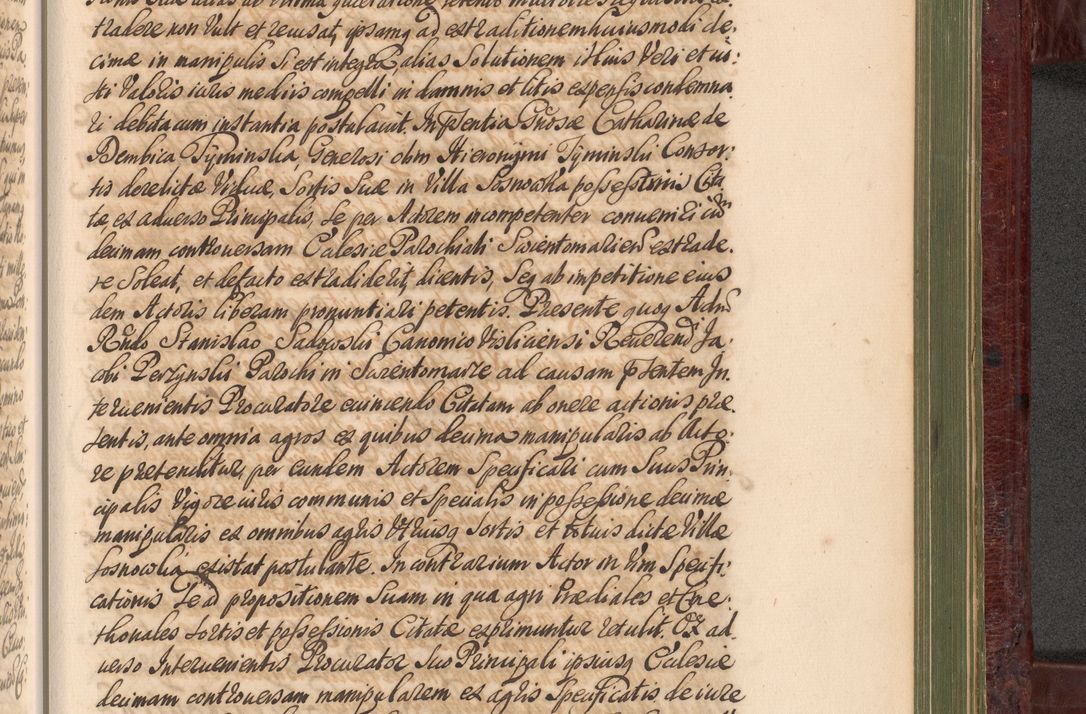 tradere non Vult et recusat, ipsamq ad extraditionem huiusmodi de:
cimæ in manipulis si est integra, alias Solutionem illius Veri et iu:
sti Valoris iuris mediis compelli in damnis et litis expensis condemna
ri debita cum instantia postulauit. In Pñtia Gñosæ Catharinæ de
Dembica Tyminska, Generosi olim Hieronymi Tyminskii Consor:
tis derelictæ Viduæ, Sortis Suæ in Villa Sosnowka possessricis Cita
tæ, ex aduerso Principalis, se per Actorem incompetenter conueniri cum
decimam controuersam Ecclesiæ Parochiali Swientomarien extrade.
re Soleat, et defacto extradiderit, dicentis, Seq ab impetitione eius
dem Actoris liberam pronuntiari petentis. Præsente quoq Adm
Rñdo Stanislao Sadowski Canonico Visliciensi Reverend Ja.
cobi Perzynskii Parochi in Swientomarze ad causam pñtem In.
teruenientis Procuratore euincendo Citatam ab onere actionis præ.
sentis, ante omnia agros ex quibus decima manipularis ab Acto:
re prætenditur, per eundem Actorem Specificari cum Suus Prin.
cipalis Vigore iuris communis et Specialis in possessione decimæ
manipularis ex omnibus agris Vtriusq Sortis et totius dictæ Villæ
Sosnowka existat postulante. In contrarium Actor in Vim Specifi:
cationis Se ad propositionem Suam in qua agri Prædiales et Cme.
thonales Sortis et possessionis Citatæ exprimuntur retulit. Ex ad.
uerso Interuenientis Procurator Suo Principali ipsiusq Ecclesiæ
decimam controuersam manipularem ex agris Specificatis de iure